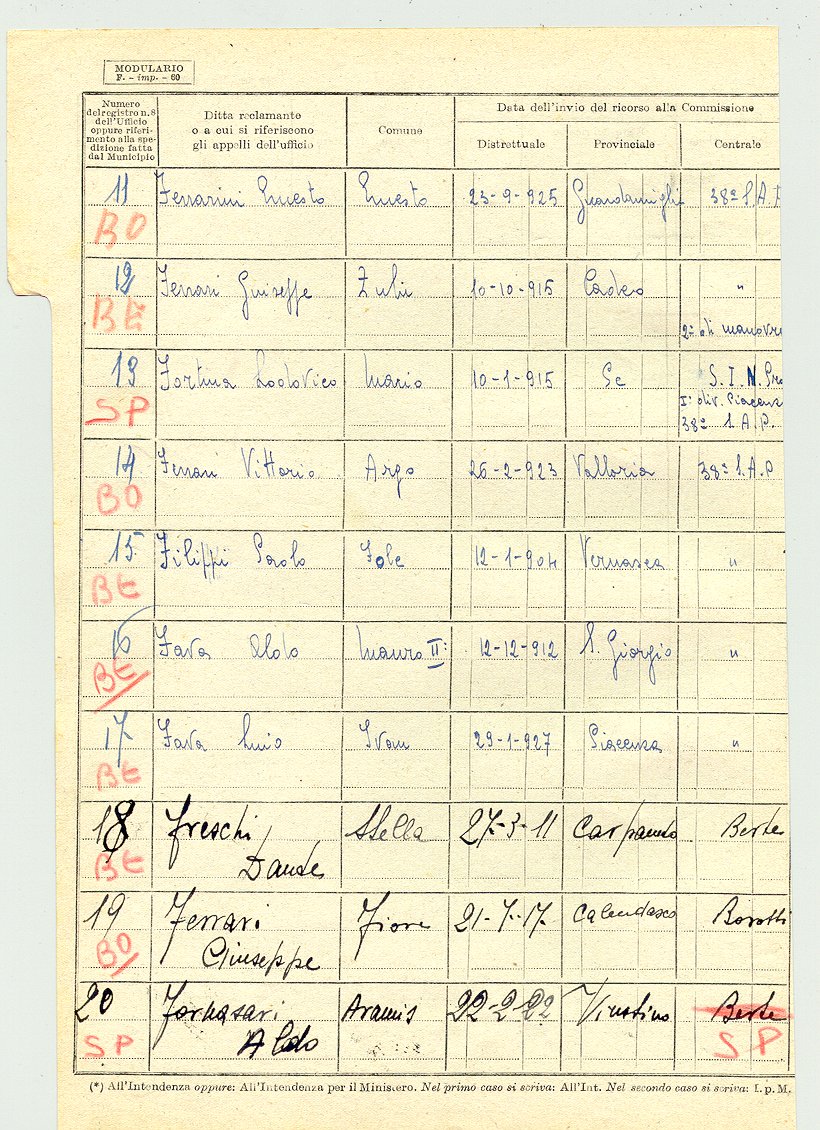 MODULARIO
F. - imp. - 60
Numero del registro n. 8 dell'Ufficio oppure riferimento alla spedizione fatta dal Municipio
Ditta reclamante o a cui si riferiscono gli appelli dell'ufficio
Comune
Data dell'invio del ricorso alla Commissione
Distrettuale Provinciale Centrale
11 Ferrarini Ernesto Ernesto 23-9-925 Guardamiglio 38ª S.A.P
BO
12 Ferrari Giuseppe 10-10-915 Cadeo "
BE 2ª di manovra
13 Fortuna Lodovico Mario 10-1-915 S. I. N.
SP Iª div. Piacenza
38ª S.A.P.
14 Ferrari Vittorio Argo 26-2-923 Valloria 38ª S.A.P
BO
15 Filippi Paolo Jole 12-1-904 Vernasca "
BE
16 Fava Aldo Mauro II: 12-12-912 S. Giorgio "
BE
17 Fava Ivan 29-1-927 Piacenza "
BE
18 Freschi Stella 27-3-11 Carpaneto Berte
BE Dante
19 Ferrari Fiore 21-7-17 Calendasco Borotti
BO Giuseppe
20 Fornasari Aramis 22-2-22 Berte
SP Aldo SP
(*) All'Intendenza oppure: All'Intendenza per il Ministero. Nel primo caso si scriva: All'Int. Nel secondo caso si scriva: I. p. M.